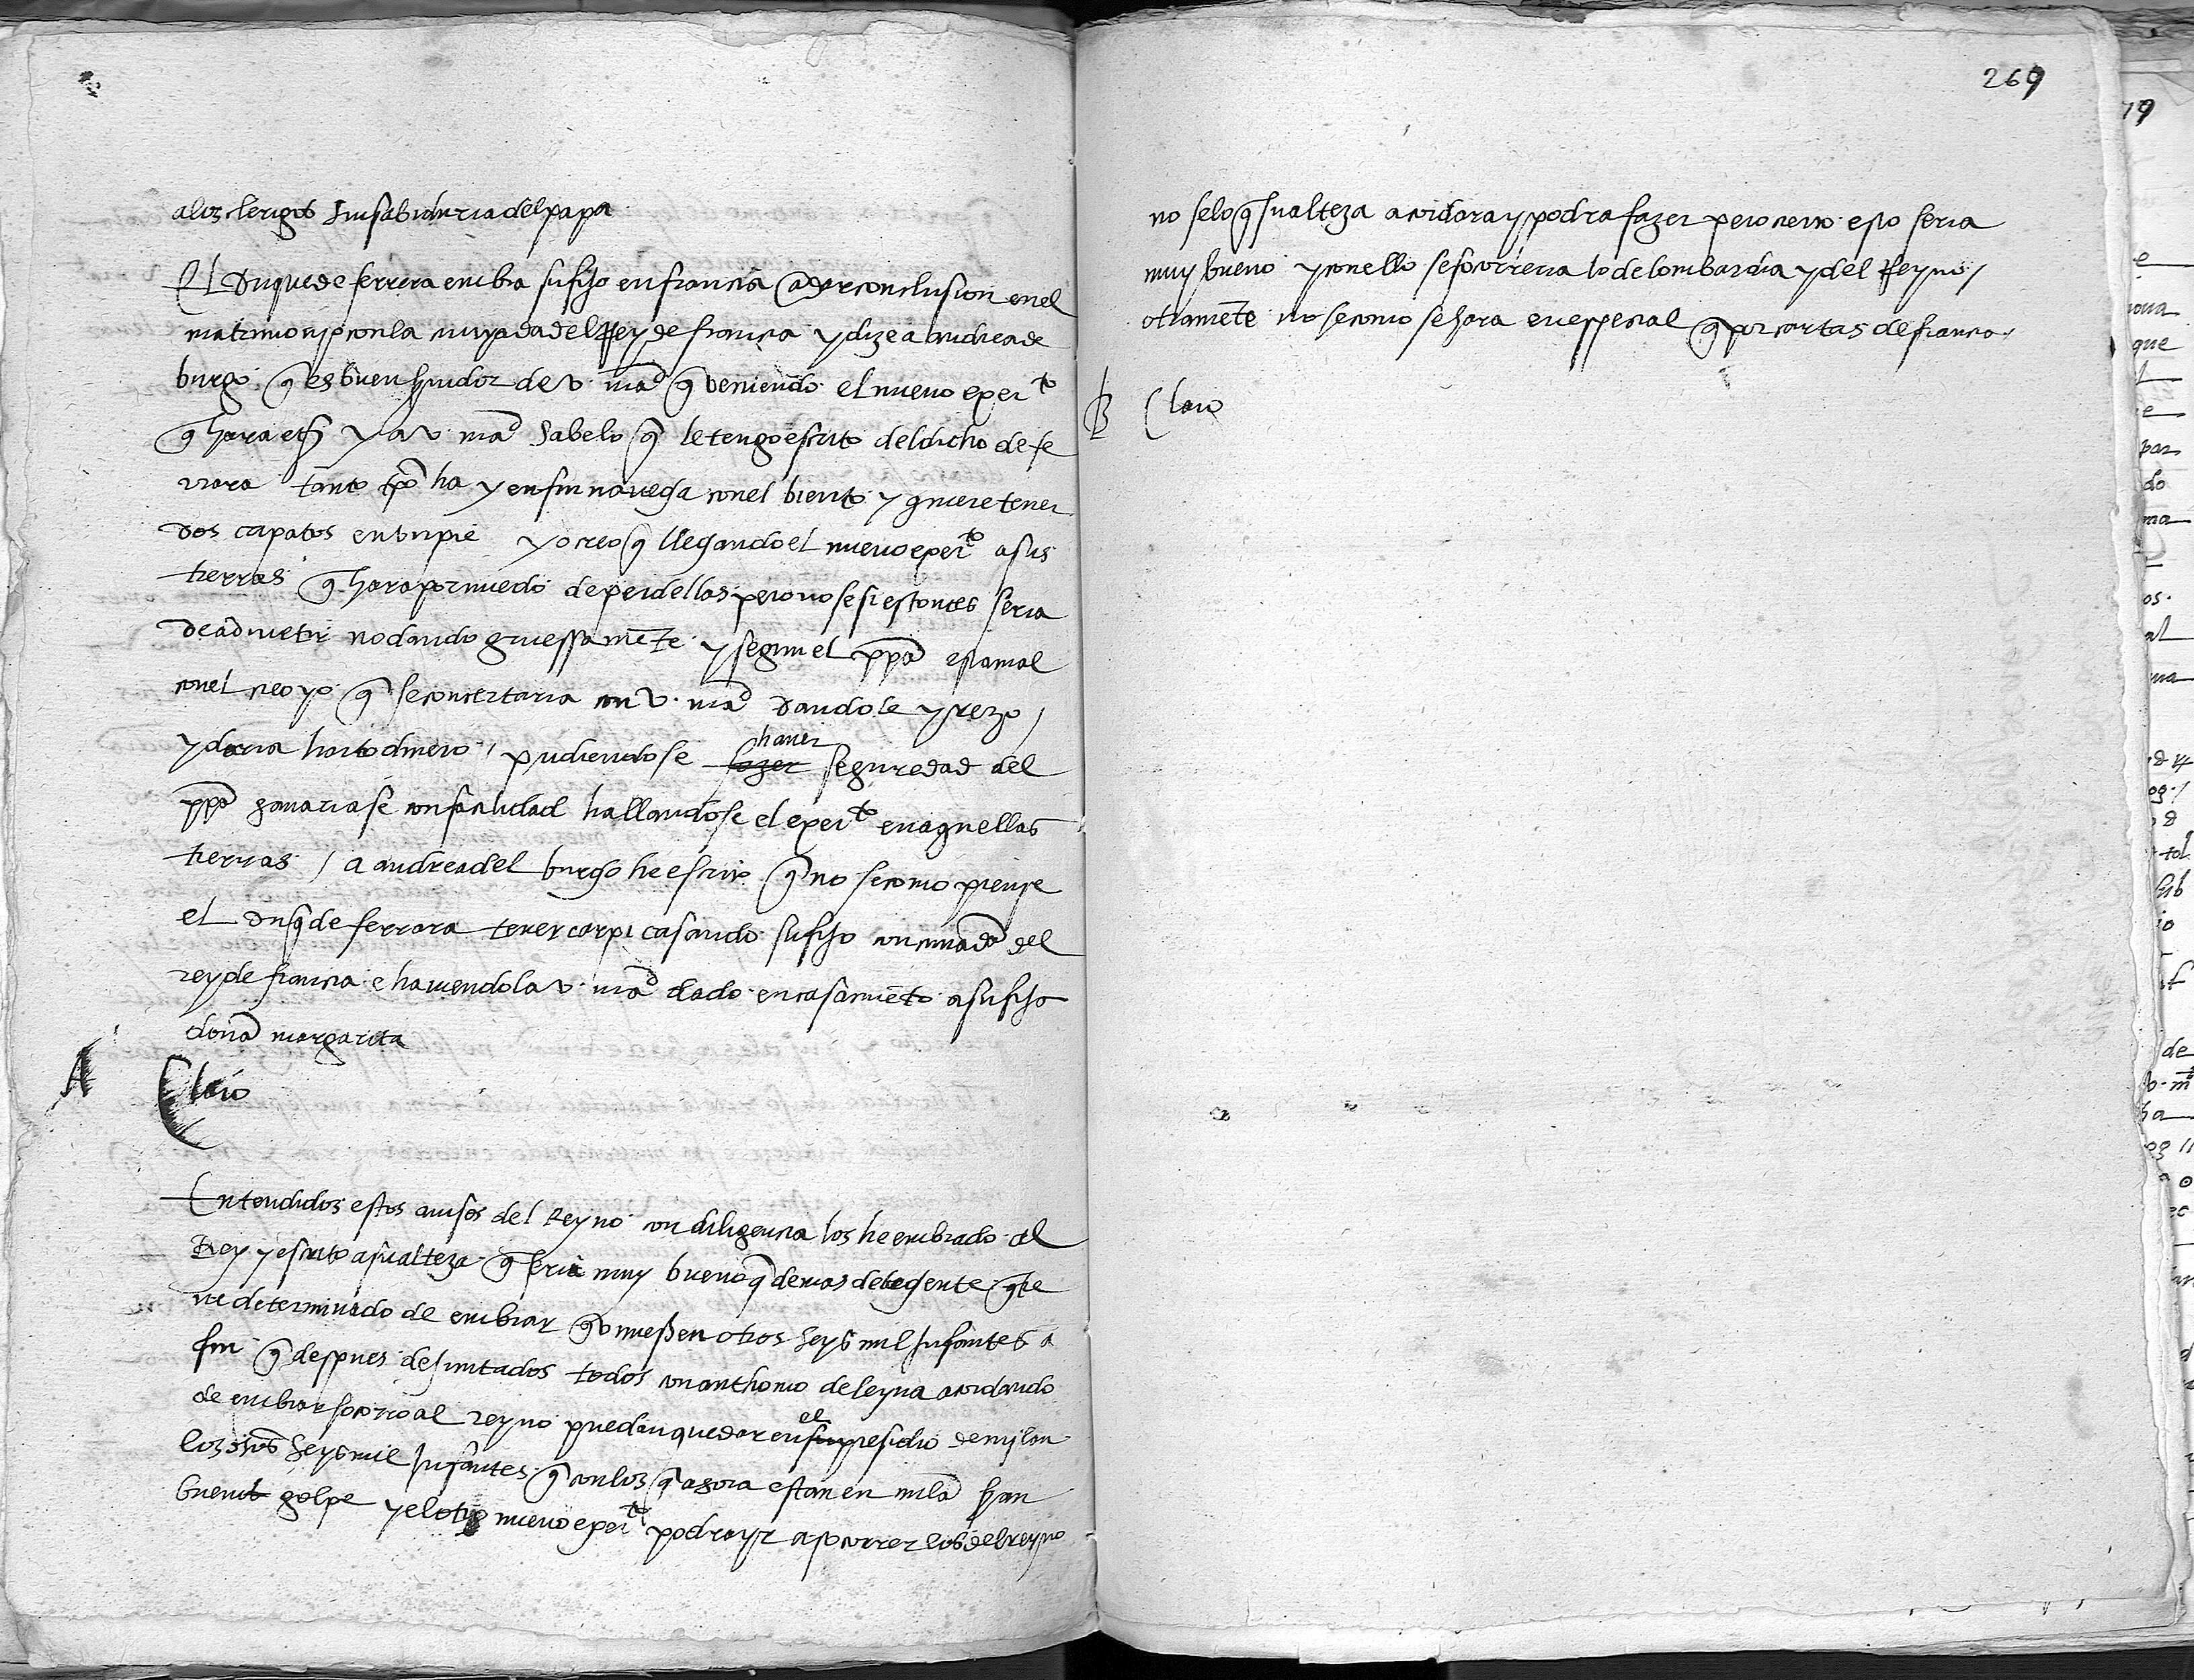 a los clerigos sin sabiduria del papa
El Duque de ferrera embia su fijo en francia a dar conclusion en el
matrimonyo con la cunyada del Rey de francia y dize a andrea de
burgo q̄ es buen s̃uidor de v. mad q̄ veniendo el nueuo exerto
q̄ hara etc̃ y a v. mad sabelo q̄ le tengo escrito del dicho de fe
rrara tanto tpo ha y en fin nauega con el biento y quiere tener
dos capatos en vn pie yo creo q̄ llegando el nueuo exerto a sus
tierras q̄ hara por miedo de perdellas pero no se si estonces seria
de admetir no dando gruessamẽte y segun el ppa esta mal
con el creo yo q̄ se concertaria con v. mad dandole y rezo /
y daria harto dinero / pudiendose fazer hauer seguredad del
ppa ganariase con facilidad hallandose el exerto en aquellas
tierras / a andrea del burgo he escrito q̄ no se como piense
el duq̄ de ferrara tener carpi casando su fijo con cunada del
rey de francia e hauiendola v. mad dado en casamiẽto a su fijo
dona margarita
A Claro
Entendidos estos auisos del Reyno con diligencia los he embiado al
Rey y escrito a su alteza q̄ seria muy bueno q̄ demas de la gente q̄ tie
ne determinado de embiar q̄ viniessen otros seys mil Infantes a
fin q̄ despues de juntados todos con anthonio de leyua acordando
de embiar socorro al reyno puedan quedar en su el presidio de mylan
los dichos seys mil Infantes q̄ con los q̄ agora estan en milã han
buen golpe y el otro nueuo exerto podra yr a socorrer los del reyno
269
no se lo q̄ su alteza acordara y podra fazer pero cierto esto seria
muy bueno y con ello se socorreria lo de lombardia y del Reyno /
otramẽte no se como se hara en especial q̄ por cartas de francia /
B Claro